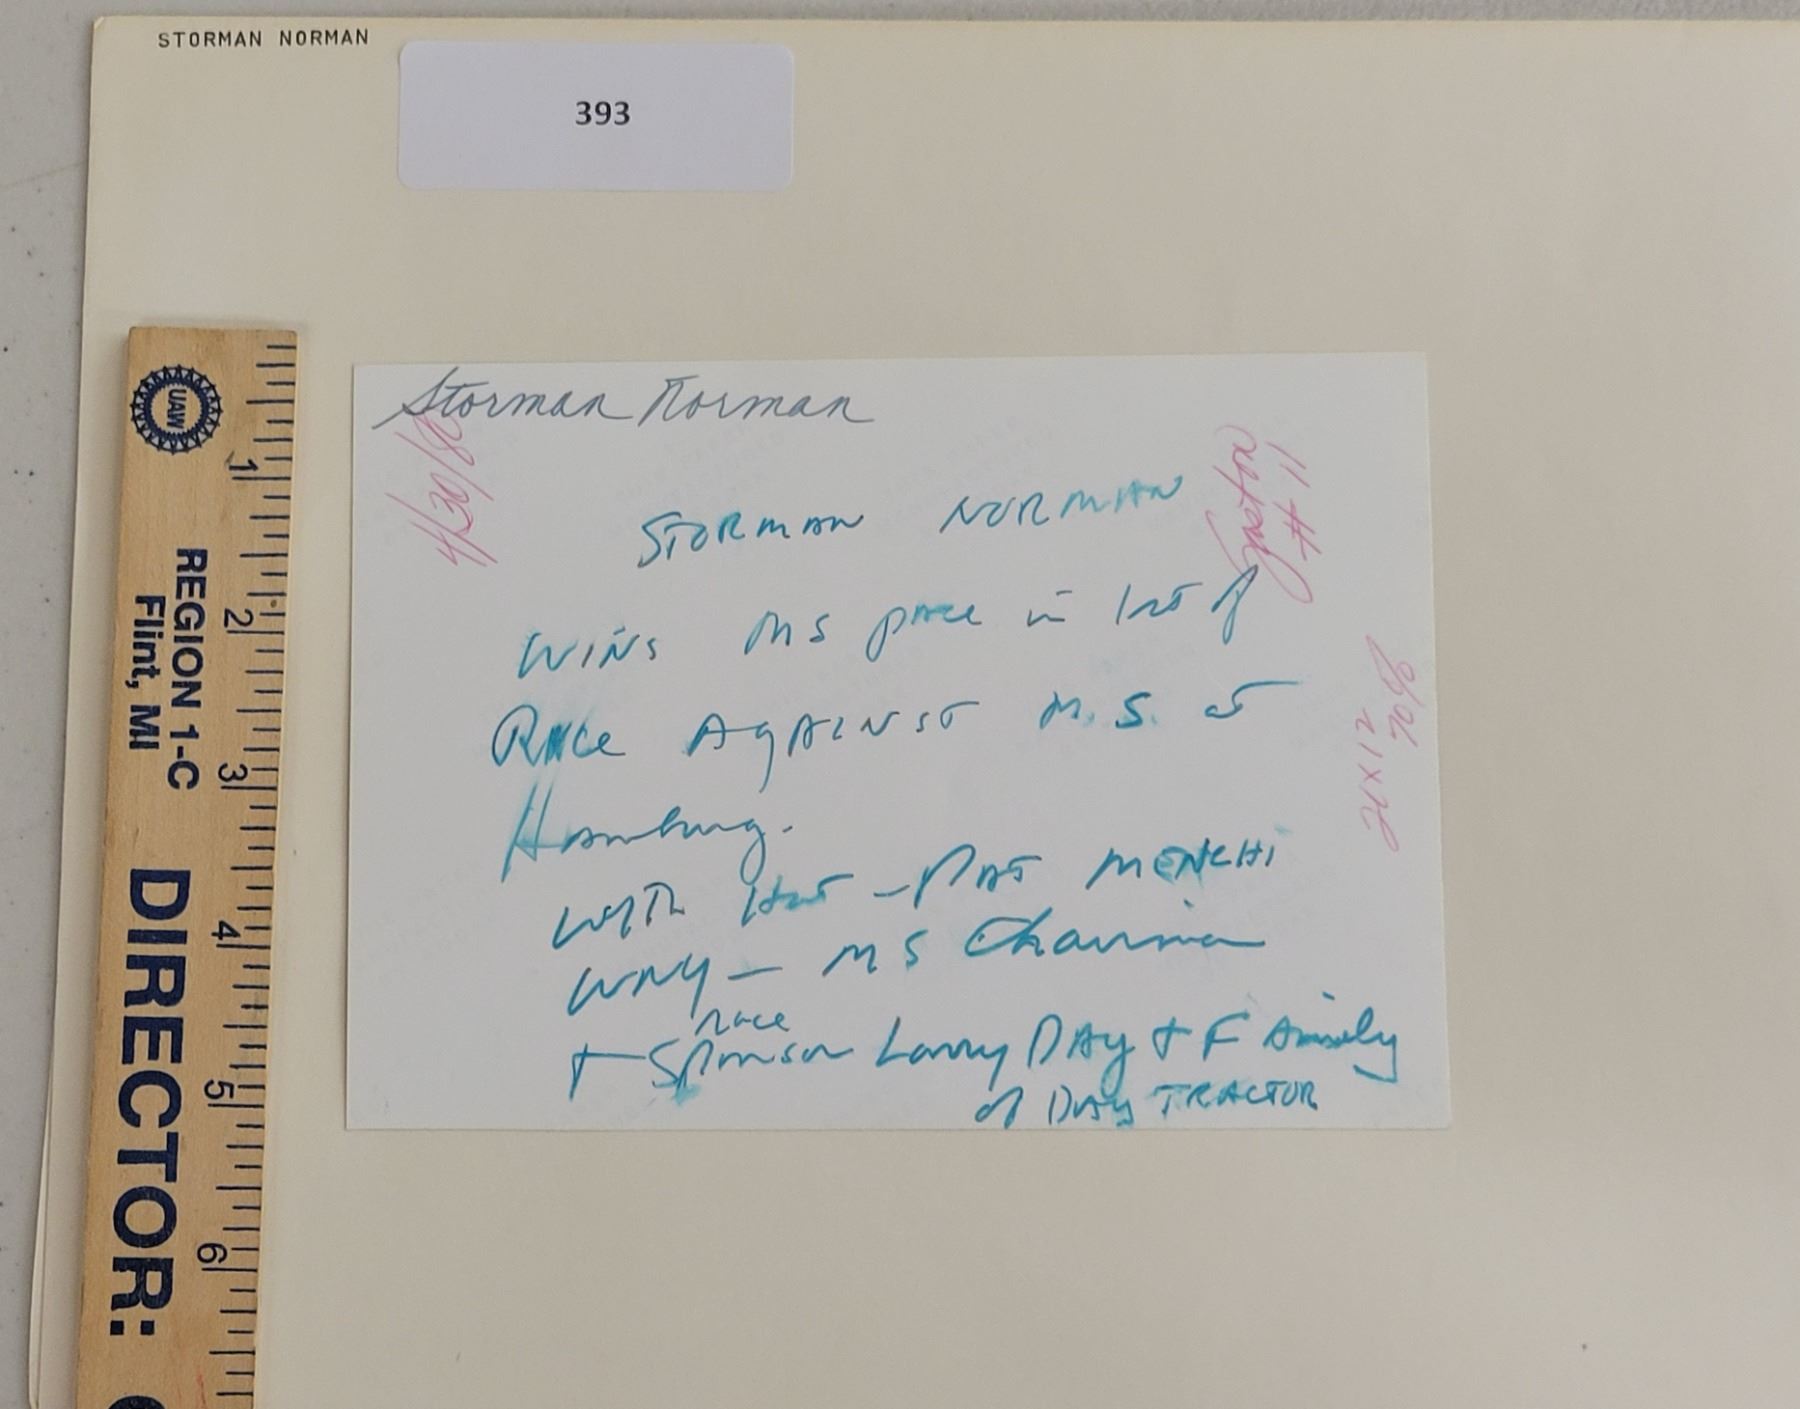 STORMAN NORMAN
393
Storman Norman
4/30/86
STORMAN NORMAN
WINS MS pace in 1st of
Race AgAINST M.S. at
Hamburg.
WITH Hat - PAT MENCHI
WNY - MS Chairman
race
+ Sponsor Larry DAy + FAmily
of DAy TRACTOR
# 11
90%
2 1 x 3
UAW
REGION 1-C
Flint, MI
DIRECTOR:
1
2
3
4
5
6